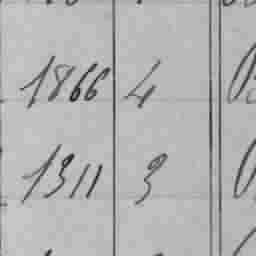 1866 4
1311 3